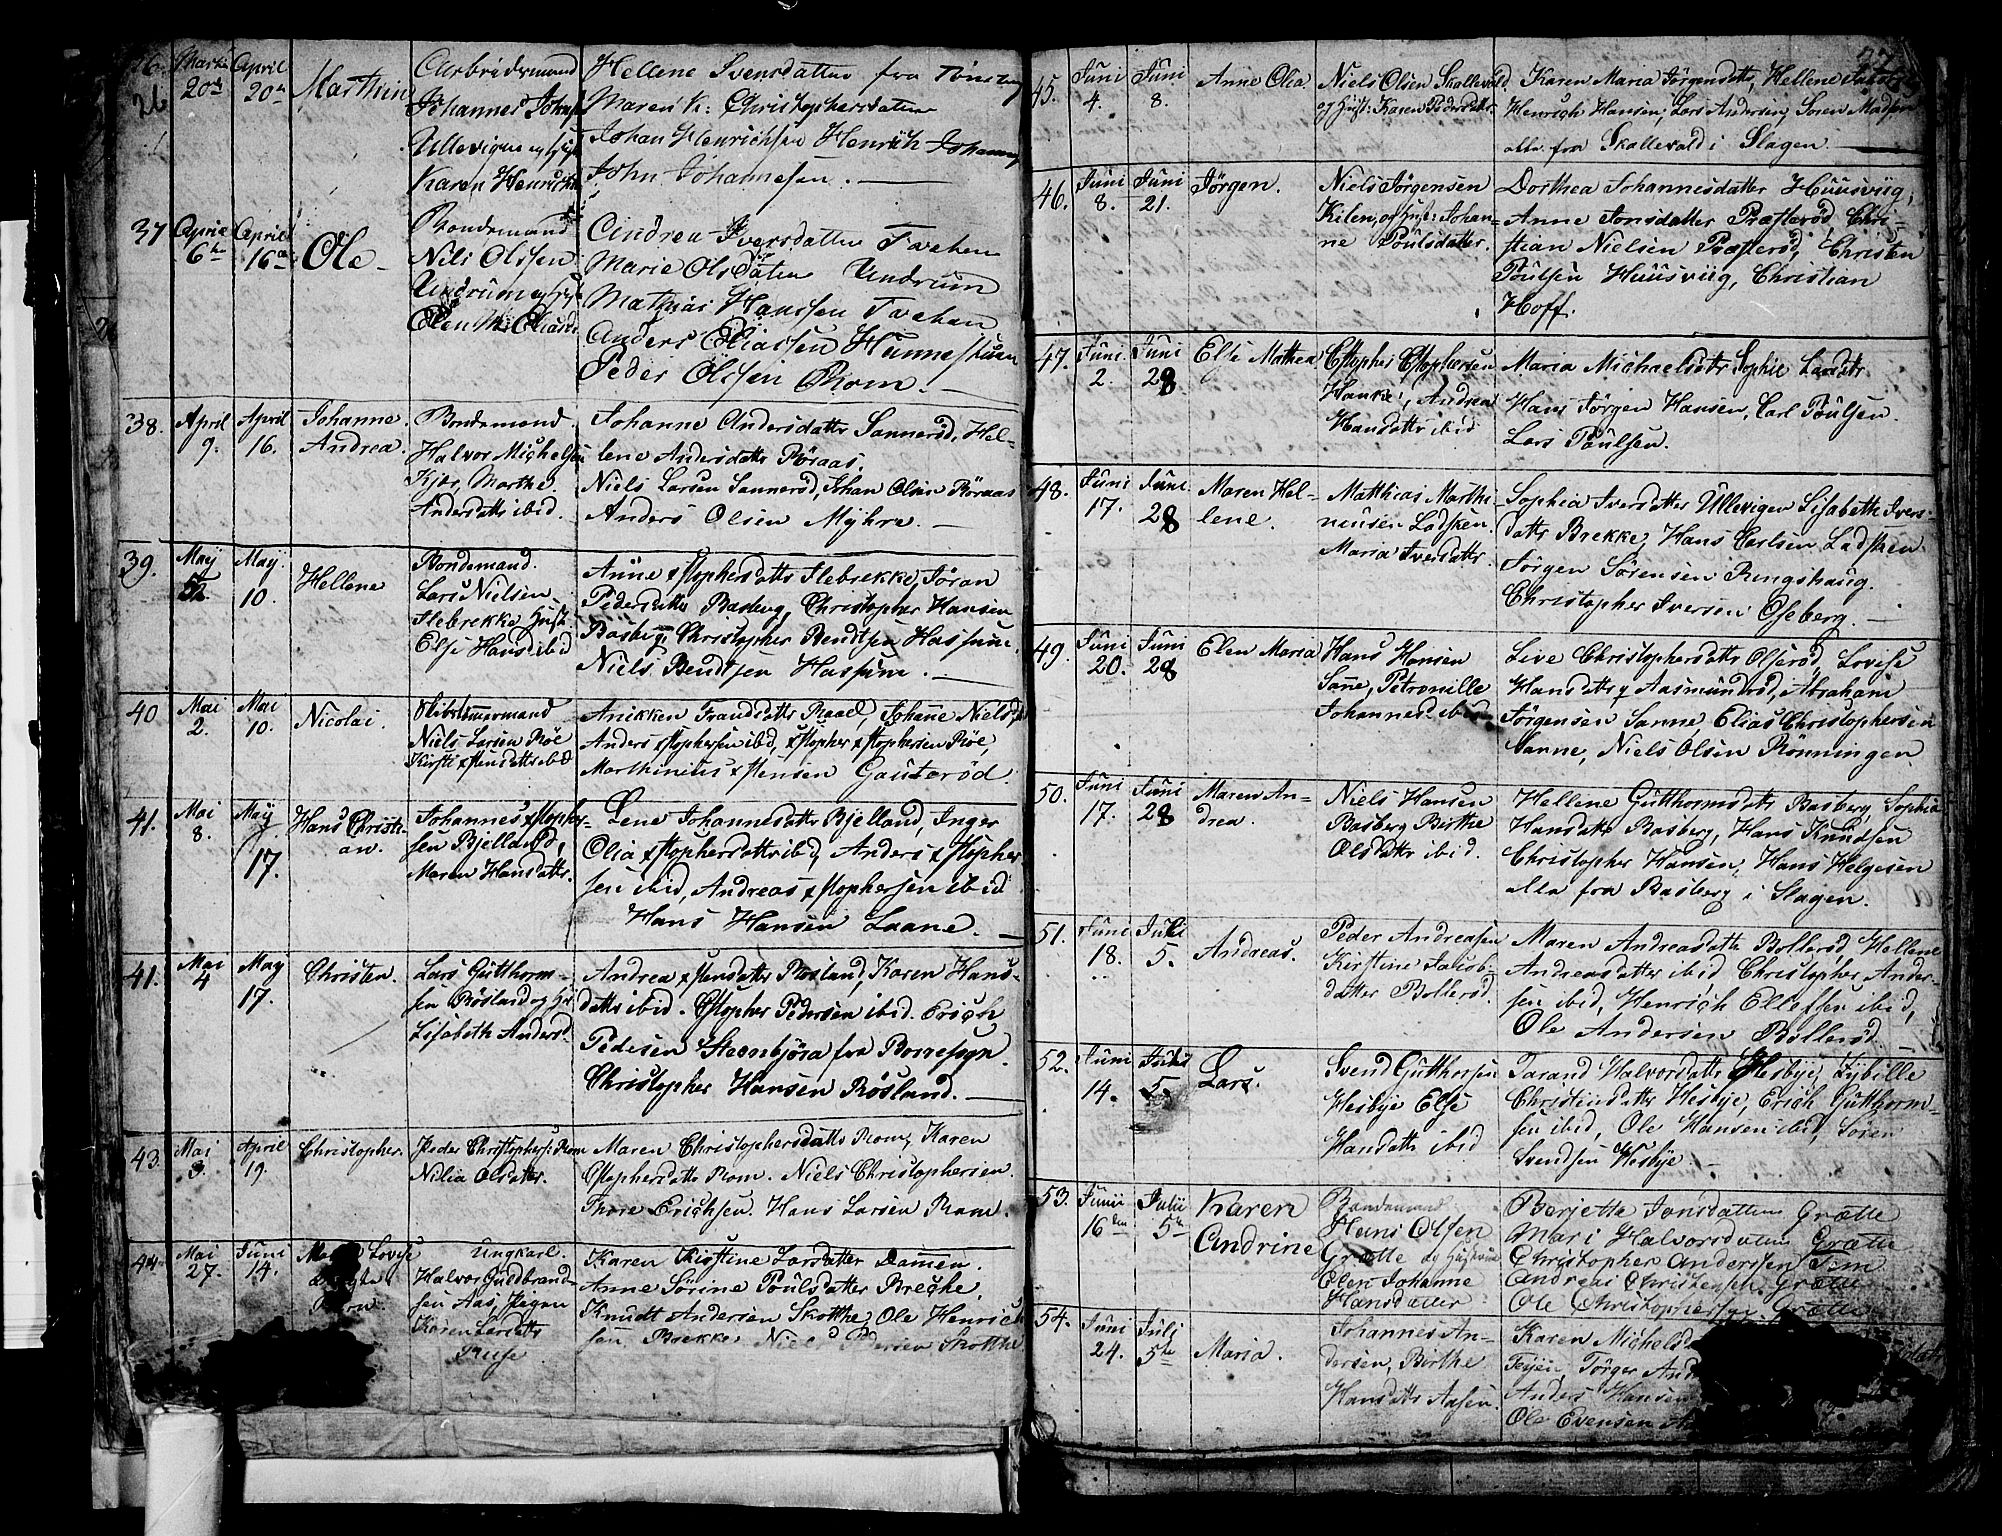 36. Marti 20de April 20de Marthin Arbeidsmand
Johannes Johns
Ullevigen og Hust
Karen Henrichs
Hellene Svensdatter fra Tønsberg
Maren K: Christophersdatter
Johan Henrichsen Henrich Johannes
John Johannesen.
37 April 6te April 16de Ole Bondemand
Nils Olssen
Undrum og Hust
Elen M: Eliasd
Andrea Iversdatter Tvehen
Marie Olsdatter Undrum
Mathias Hanssen Tvehen
Anders Eliassen Hunnestuen
Peder Olssen Rom.
38. April 9. April 16. Johanne
Andrea.
Bondemand
Halvor Michelsen
Kjær, Marthe
Andersdattr ibid.
Johanne Andersdattr Sannerød, Hel-
lene Andersdattr Røraas.
Niels Larsen Sannerød, Johan Olsen Røraas
Anders Olsen Myhre.
39. May May 10. Hellene
Bondemand.
Lars Nielsen
Ilebrekke, Hust:
Else Hansd ibid
Anne Xstophersdattr Ilebrekke, Jøran
Pedersdattr Basberg, Christopher Hansen
Basberg, Christopher Bendtsen Hassum,
Niels Bendtsen Hassum.
40 Mai 2. Mai 10. Nicolai.
Niels Larsen Røe
Kirsti Xstensdattr ibid
Anikken Frandsdattr Raael, Johane Nielsd
Anders Xstophersen ibid, Xstopher Xstophersen Røe,
Marthinius Xstensen Gauterød
41. Mai 8. May 17. Hans Christi-
an.
Johannes Xstopher-
sen Bjelland,
Maren Hansdattr.
Lene Johannesdattr Bjelland, Inger
Olia Xstophersdattr ibid, Anders Xstopher-
sen ibid, Andreas Xstophersen ibid
Hans Hansen Laane.
41. Mai 4 May 17. Christen.
Lars Gutthorm-
sen Røsland og Hu
Lisabeth Andersd.
Andrea Xstensdattr Røsland, Karen Hans-
dattr ibid. Xstopher Pedersen ibid. Erich
Pedersen Steenbjøra fra Borresogn.
Christopher Hansen Røsland.
43 Mai 3. April 19. Christopher.
Peder Christophers: Rom
Nilia Olsdatter.
Maren Christophersdattr Rom, Karen
Xstophersdattr Rom. Niels Christophersen.
Thore Erichsen. Hans Larsen Rom.
44. Mai 27. Juni 14. Lovise
Ungkarl.
Halvor Guldbrand-
sen Aas, Pigen
Karen Larsdattr
Karen Kirstine Larsdatter Damen.
Anne Sørine Poulsdatter Breche,
Knudt Andersen Skotthe, Ole Henrich
sen Brekke, Niels Pedersen Skotthe
45. Juni 4. Juni 8. Anne Olea.
Niels Olsen Skallevold
og Hust: Karen Pedersdattr.
Karen Maria Jørgensdattr, Hellene
Henrich Hansen, Lars Andersen, Søren Madsen
alle fra Skallevold i Slagen.
46. Juni 8. Juni 21. Jørgen.
Niels Jørgensen
Kilen, og Hust: Johan-
ne Poulsdatter.
Dorthea Johannesdatter Huusviig,
Anne Jonsdatter Præsterød, Chri-
stian Nielsen Præsterød, Christen
Poulsen Huusviig, Christian
Hoff.
47. Juni. 2. Juni 28 Else Mathea
Xstopher Xstophersen
Hanke, Andrea
Hansdattr ibid
Maria Michaelsdttr Sophie Larsdtr
Hans Jørgen Hansen, Carl Poulsen.
Lars Poulsen.
48. Juni 17. Juni 28 Maren Hel-
lene.
Matthias Marthi-
niusen Ladsken
Maria Iversdattr.
Sophia Iversdatter Ullevigen Lisabeth Ivers-
dattr Brekke, Hans Carlsen Ladsken.
Jørgen Sørensen Ringshaug.
Christopher Iversen Oseberg.
49. Juni 20. Juni 28 Elen Maria
Hans Hansen
Sanne, Petronille
Johannesd ibid
Live Christophersdattr Olserød, Lovise
Hansdattr Aasmundrød, Abraham
Jørgensen Sanne, Elias Christophersen
Sanne, Niels Olsen Rønningen
50. Juni 17. Juni 28 Maren An-
drea.
Niels Hansen
Basberg Birthe
Olsdattr ibid.
Hellene Gutthormsdattr Basberg, Sophia
Hansdattr Basberg, Hans Knudsen
Christopher Hansen, Hans Helgesen
alle fra Basberg i Slagen.
51. Juni 18. Juli 5. Andreas.
Peder Andreasen
Kirstine Jacob-
datter Bollerød.
Maren Andreasdattr Bollerød, Hellene
Andreasdatter ibid, Christopher Ander-
sen ibid, Henrich Ellefsen ibid,
Ole Andersen Bollerød
52. Juni 14. Juli 5. Lars.
Svend Gutthormsen
Hesbye Else
Hansdattr ibid
Tarand Halvorsdattr Hesbye, Sybille
Christensdattr Hesbye, Erich Gutthorm-
sen ibid, Ole Hansen ibid, Søren
Svendsen Hesbye.
53. Junii 16den Julii 5te Karen
Andrine
Bondemand
Hans Olsen
Grætte og Hustrue
Elen Johanne
Hansdatter
Berjette Jonsdatter Grætte
Mari Halvorsdatter Grætte
Christopher Anderssen Tem
Andreas Christensen Grætte
Ole Christophersen Grætte
54. Juni 24. Juli 5te Maria.
Johannes An-
dersen, Birthe
Hansdattr Aasen.
Karen Michelsd
Feyen, Jørger And
Anders Hansen
Ole Evensen